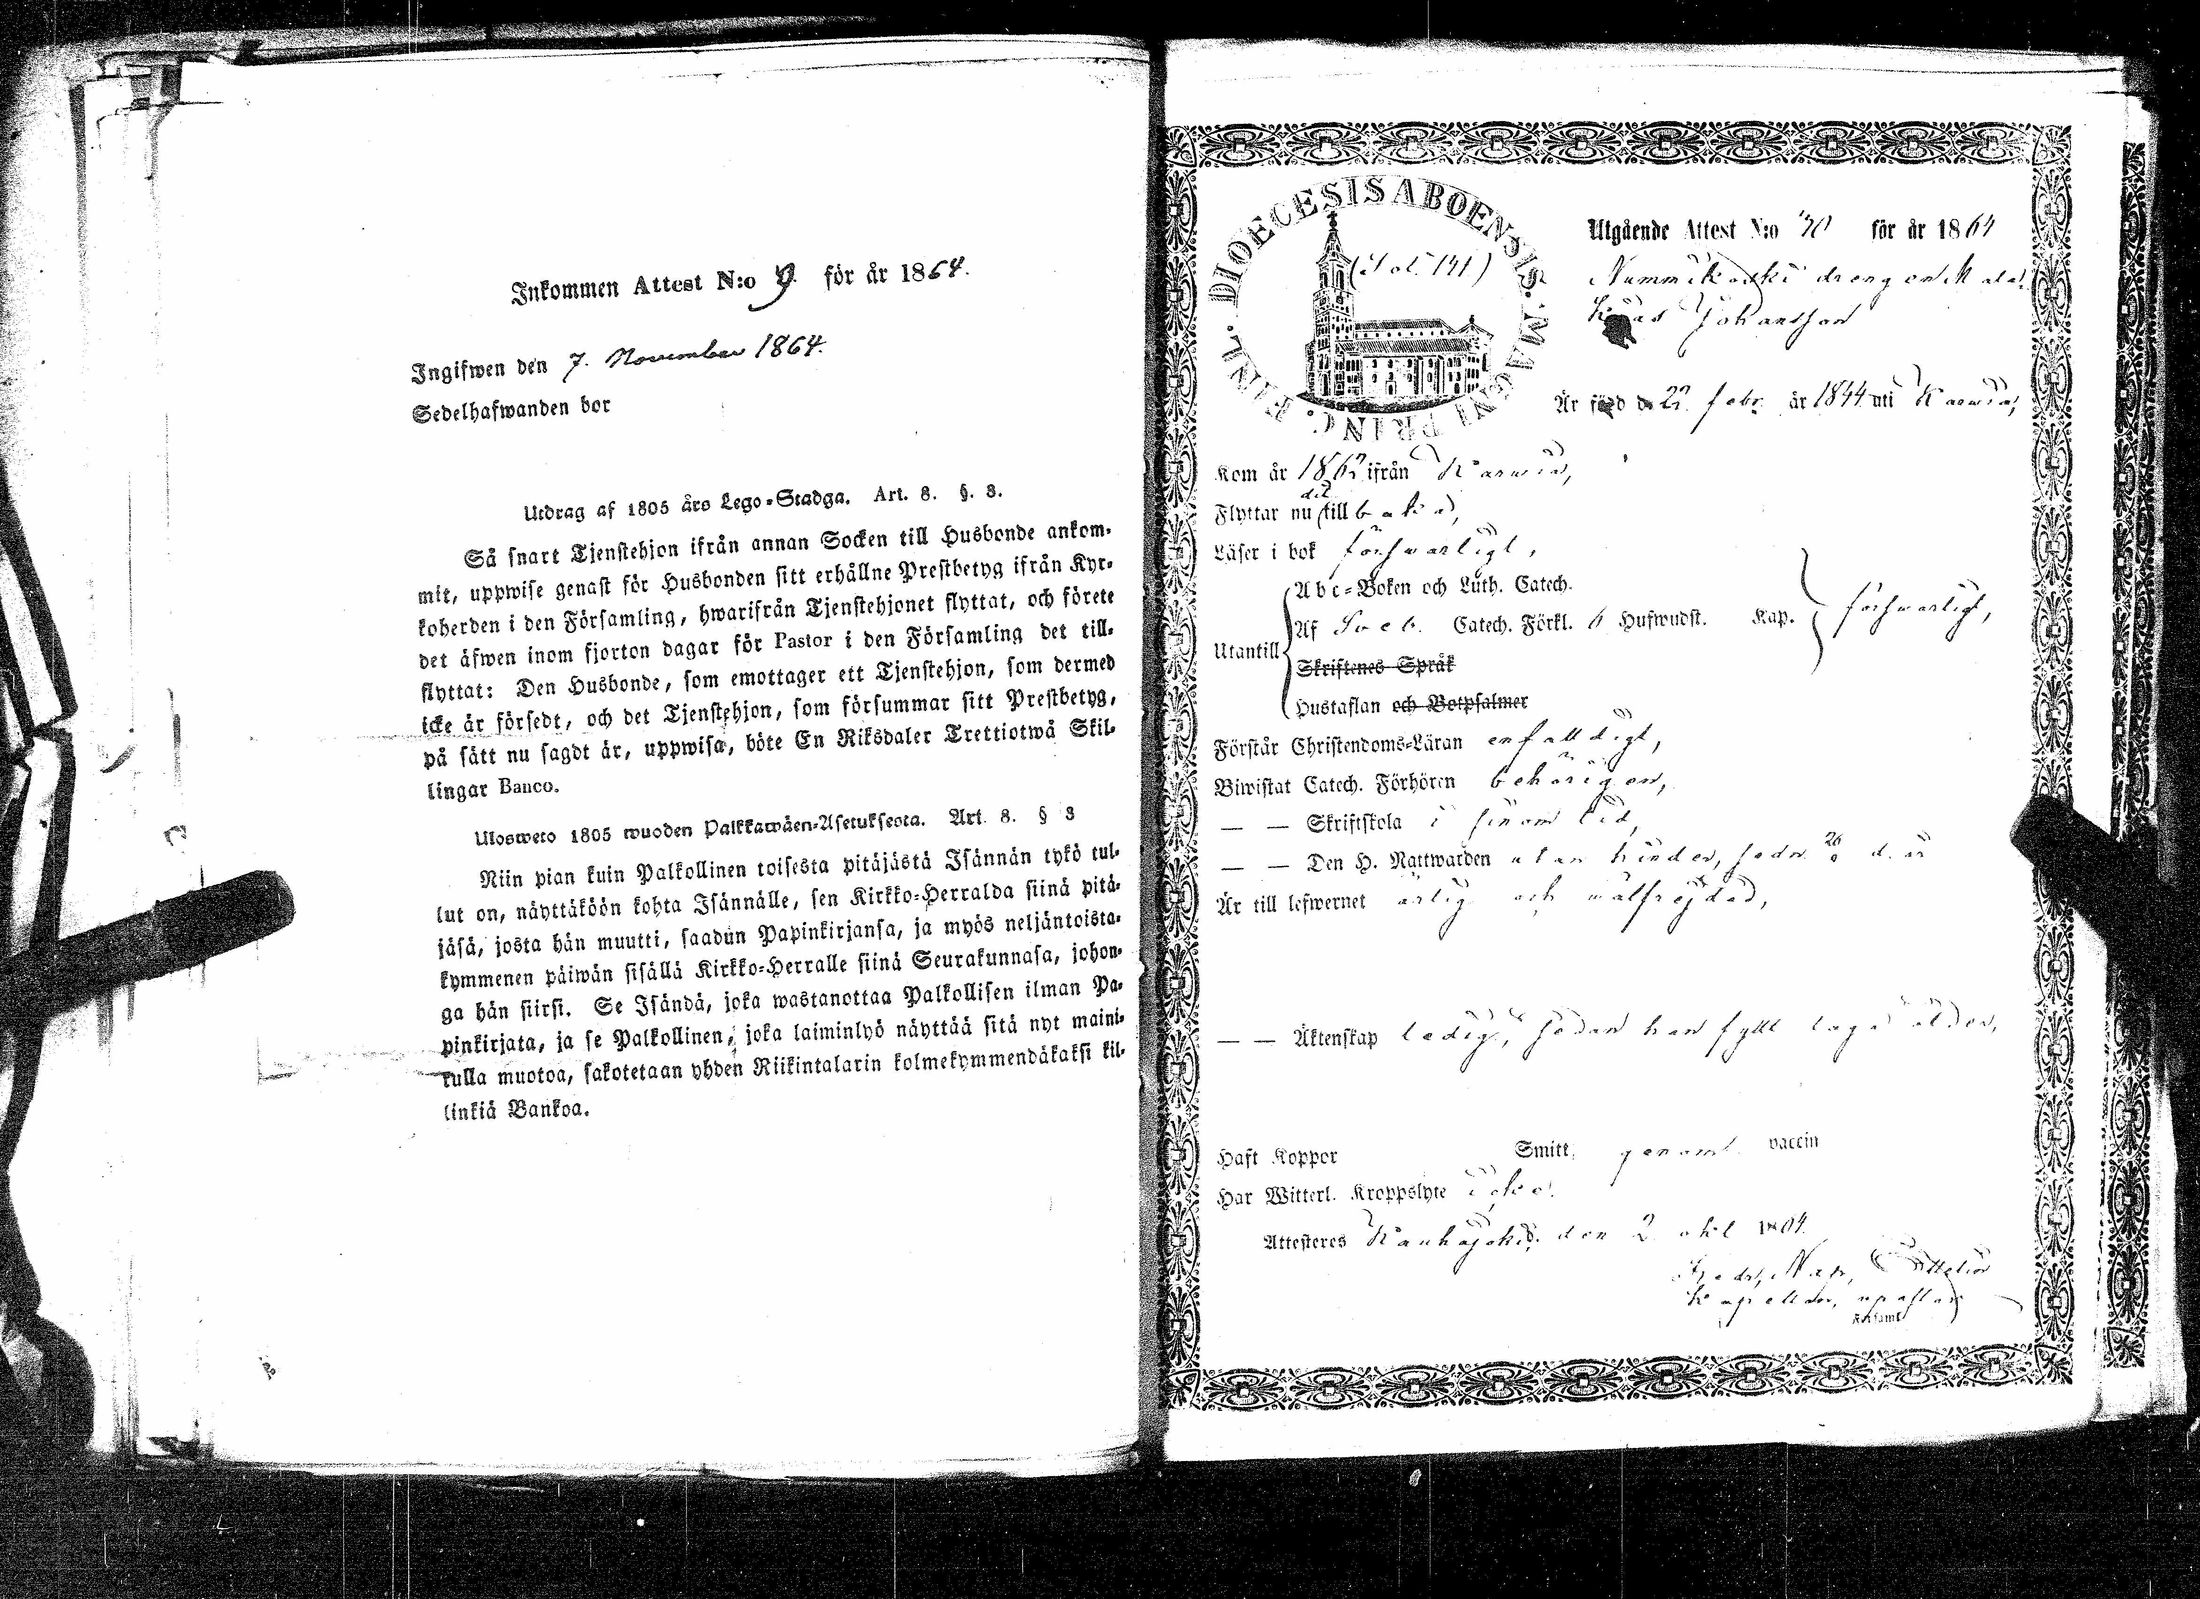 Inkommen Attest N:o 9. för år 1864.
Ingifwen den 7. November 1864.
Sedelhafwanden bor
Utdrag af 1805 års Lego-Stadga. Art. 8. §. 3.
Så snart Tjenstehjon ifrån annan Socken till Husbonde ankom-
mit, uppwise genast för Husbonden sitt erhållne Prestbetyg ifrån Kyr-
koherden i den Församling, hwarifrån Tjenstehjonet flyttat, och förete
det äfwen inom fjorton dagar för Pastor i den Församling det till-
flyttat: Den Husbonde, som emottager ett Tjenstehjon, som dermed
icke är försedt, och det Tjenstehjon, som försummar sitt Prestbetyg,
på sätt nu sagdt är, uppwisa, böte En Riksdaler Trettiotwå Skil-
lingar Banco.
Ulosweto 1805 wuoden Palkkawäen-Asetuksesta. Art. 8. § 3
Niin pian kuin Palkollinen toisesta pitäjästä Isännän tykö tul-
lut on, näyttäköön kohta Isännälle, sen Kirkko-Herralda siinä pitä-
jäsä, josta hän muutti, saadun Papinkirjansa, ja myös neljäntoista-
kymmenen päiwän sisällä Kirkko-Herralle siinä Seurakunnasa, johon-
ga hän siirsi. Se Isändä, joka wastanottaa Palkollisen ilman Pa-
pinkirjata, ja se Palkollinen, joka laiminlyö näyttää sitä nyt maini-
tulla muotoa, sakotetaan yhden Riikintalarin kolmekymmendäkaksi kil-
linkiä Bankoa.
DIOECESIS ABOENSIS. MAGNI PRINC. FINL.
(Fol. 141)
Utgående Attest N:o för år 1864
Nummikoski drengen Mat
Johansson
Är född d. 22 febr. år 1844 uti Karwia,
Kom år 1862 ifrån Karwia,
Flyttar nu dit tillbaka,
Läser i bok förswarligt,
Utantill
Abc-Boken och Luth. Catech.
Af Sveb. Catech. Förkl. 6 Hufwudst. Kap. förswarligt,
Skriftenes Språk
Hustaflan och Botpsalmer
Förstår Christendoms-Läran enfaldigt,
Biwistat Catech. Förhören behörigen,
— — Skriftskola i sinom tid,
— — Den H. Nattwarden utan hinder, sedn. d. år
Är till lefwernet ärlig och wälfrejdad,
— — Äktenskap ledig, sedan han fyllt laga ålder,
Haft Koppor Smitt, genom vaccin
Har Witterl. Kroppslyte icke.
Attesteras Kauhajoki, den 2 okt. 1864.
Kapellan,
Församl.